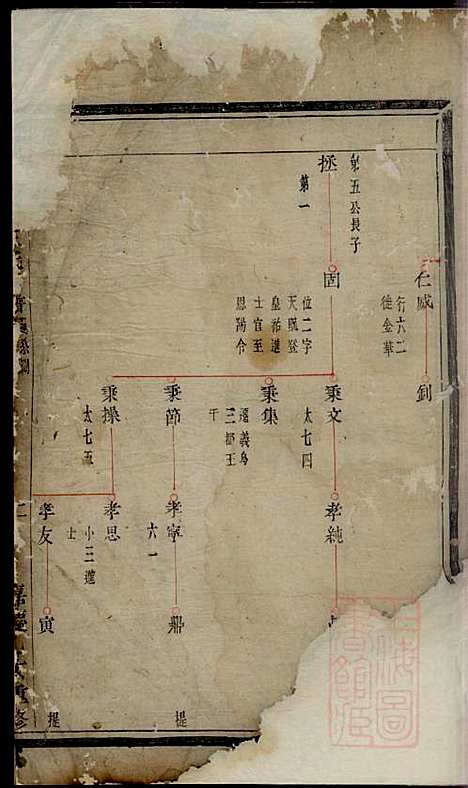 第五公長子
拯
第一
仁威
行六二
徙金華
釗
固
位二字
天貺登
皇祐進
士官至
恩陽令
秉文
太七四
秉集
遷義烏
三都王
千
秉節
秉操
太七五
孝純
孝寧
六一
孝思
小三遷
士
孝友
鼎
寅
提
提
上海圖
書館藏